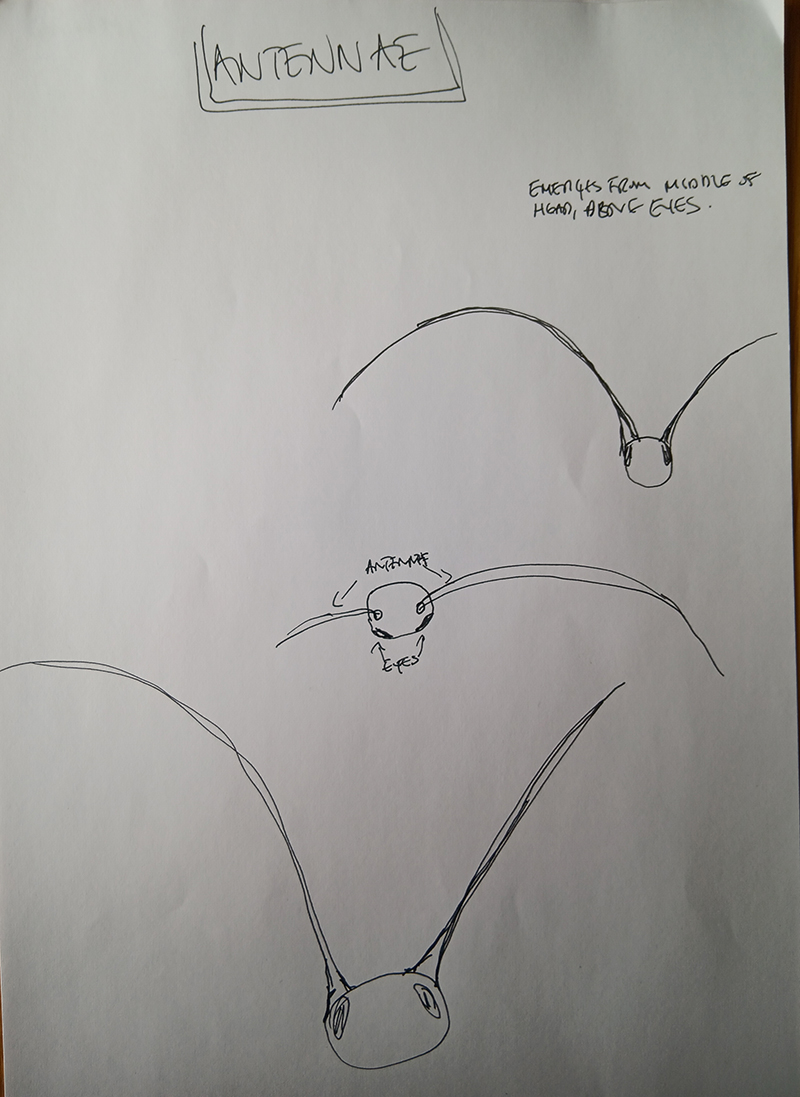 ANTENNAE
EMERGES FROM MIDDLE OF
HEAD, ABOVE EYES.
ANTENNAE
EYES